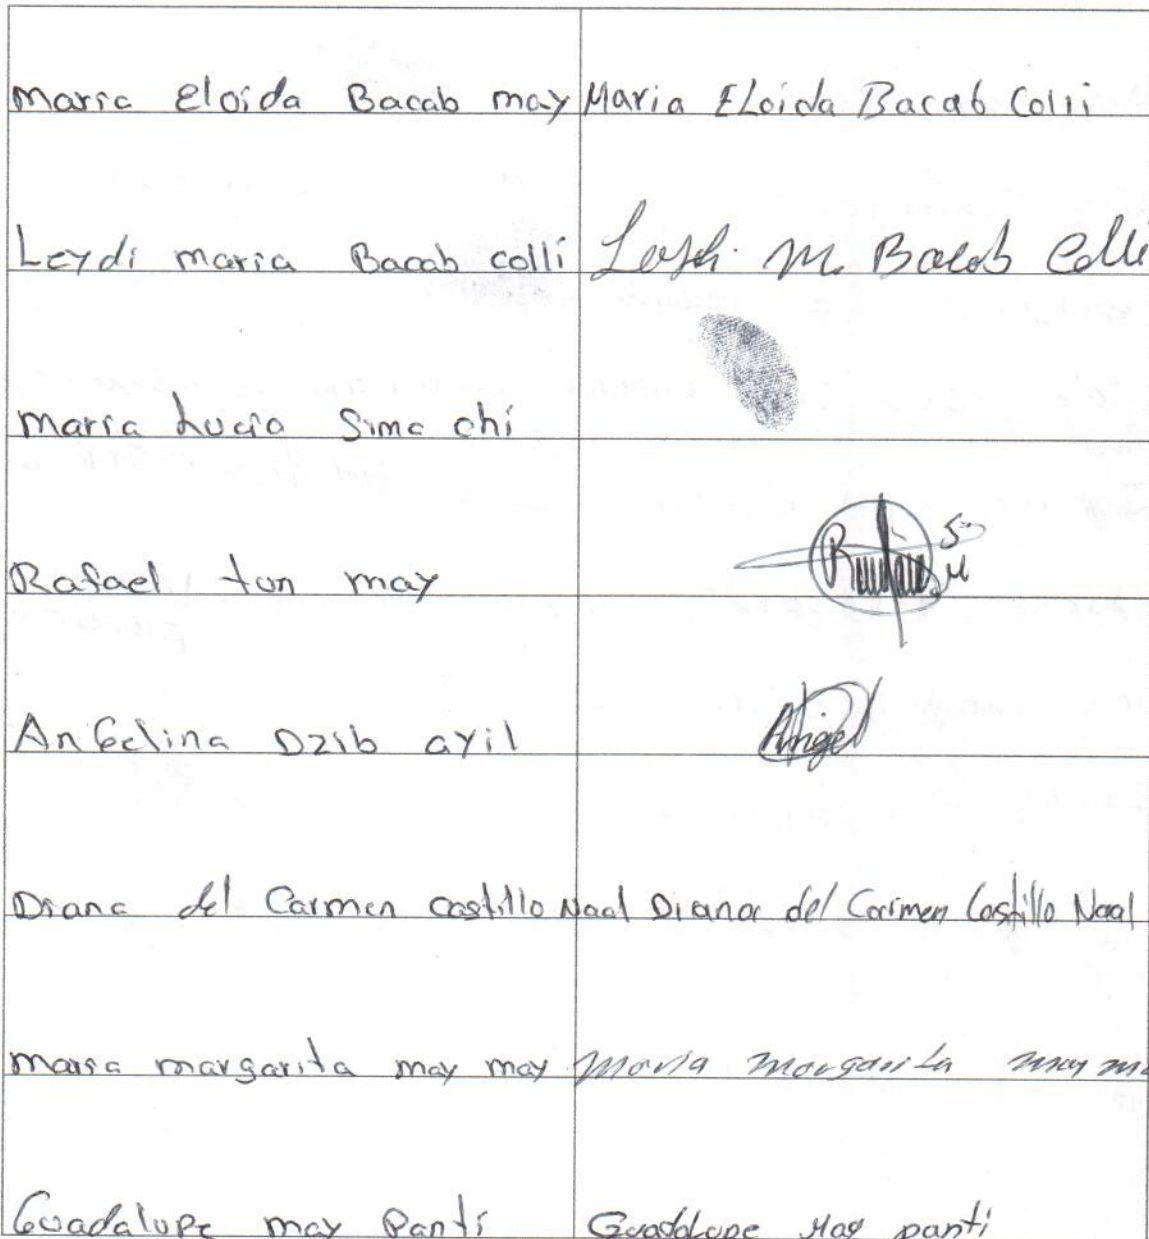 maria eloida Bacab may Maria ELoida Bacab Colli
Leydi maria Bacab colli Leydi M. Bacab Colli
maria Lucia Sima chi
Rafael tun may
AnGelina Dzib ayil Angel
Diana del Carmen castillo Naal Diana del Carmen Castillo Naal
maria margarita may may Maria Margarita may ma
Guadalupe may Panti Guadalupe May panti